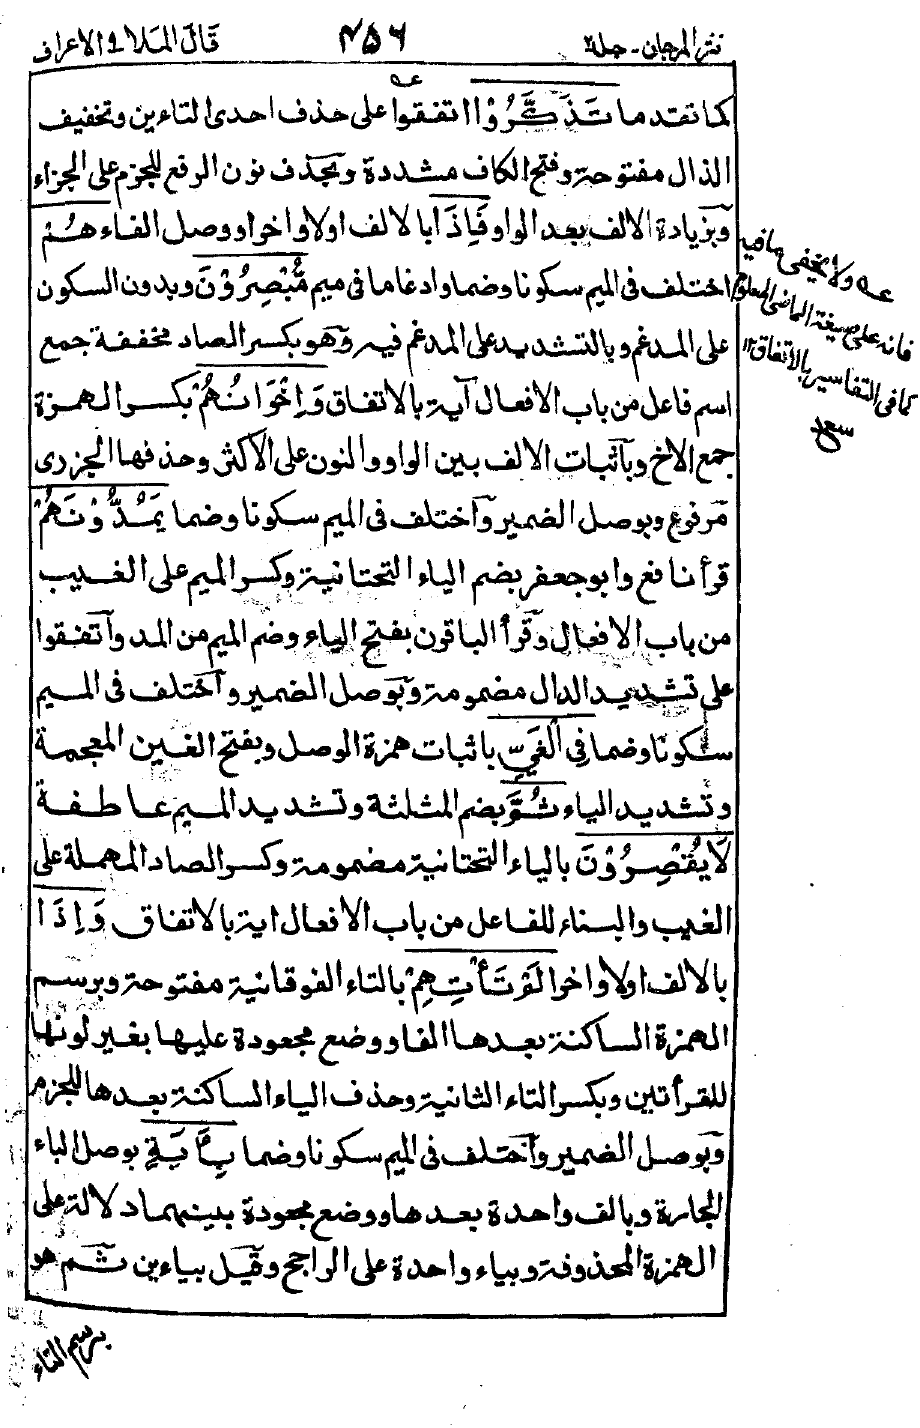 نثر المرجان - جلد ۲
۴۵۶
قَالَ المَلَا ۹ الاعراف
كما تقدم مَا تَذَكَّرُوْا اتفقوا عه على حذف احدى التاءين وتخفيف
الذال مفتوحة وفتح الكاف مشددة وبحذف نون الرفع للجزم على الجزاء
وبزيادة الالف بعد الواو فَاِذَا بالالف اولا واخرا ووصل الفاء هُمْ
اختلف فى الميم سكونا وضما وادغاما فى ميم مُّبْصِرُوْنَ وبدون السكون
على المدغم وبالتشديد على المدغم فيه وهو بكسر الصاد مخففة جمع
اسم فاعل من باب الافعال آية بالاتفاق وَاِخْوَانُهُمْ بكسر الهمزة
جمع الاخ وبآثبات الالف بين الواو والنون على الاكثر وحذفها الجزرى
مرفوع وبوصل الضمير وآختلف فى الميم سكونا وضما يَمُدُّوْنَهُمْ
قرأ نافع وابو جعفر بضم الياء التحتانية وكسر الميم على الغيب
من باب الافعال وقرأ الباقون بفتح الياء وضم الميم من المد وآتفقوا
على تشديد الدال مضمومة وبوصل الضمير وآختلف فى الميم
سكونا وضما فِى الْغَيِّ باثبات همزة الوصل وبفتح الغين المعجمة
وتشديد الياء ثُمَّ بضم المثلثة وتشديد الميم عاطفة
لَا يُقْصِرُوْنَ بالياء التحتانية مضمومة وكسر الصاد المهملة على
الغيب والبناء للفاعل من باب الافعال اية بالاتفاق وَاِذَا
بالالف اولا واخرا لَمْ تَأْتِهِمْ بالتاء الفوقانية مفتوحة وبرسم
الهمزة الساكنة بعدها الفا ووضع مجعودة عليها بغير لونها
للقرأتين وبكسر التاء الثانية وحذف الياء الساكنة بعدها للجزم
وبوصل الضمير وآختلف فى الميم سكونا وضما بِاٰيَةٍ بوصل الباء
الجارة وبالف واحدة بعدها ووضع مجعودة بينهما دلالة على
الهمزة المحذوفة وبياء واحدة على الراجح وقيل بياءين ثم هو
برسم التاء
عه ولا يخفى ما فيه
فانه على صيغة الماضى المعلوم
كما فى التفاسير بالاتفاق ۱۲
سعد